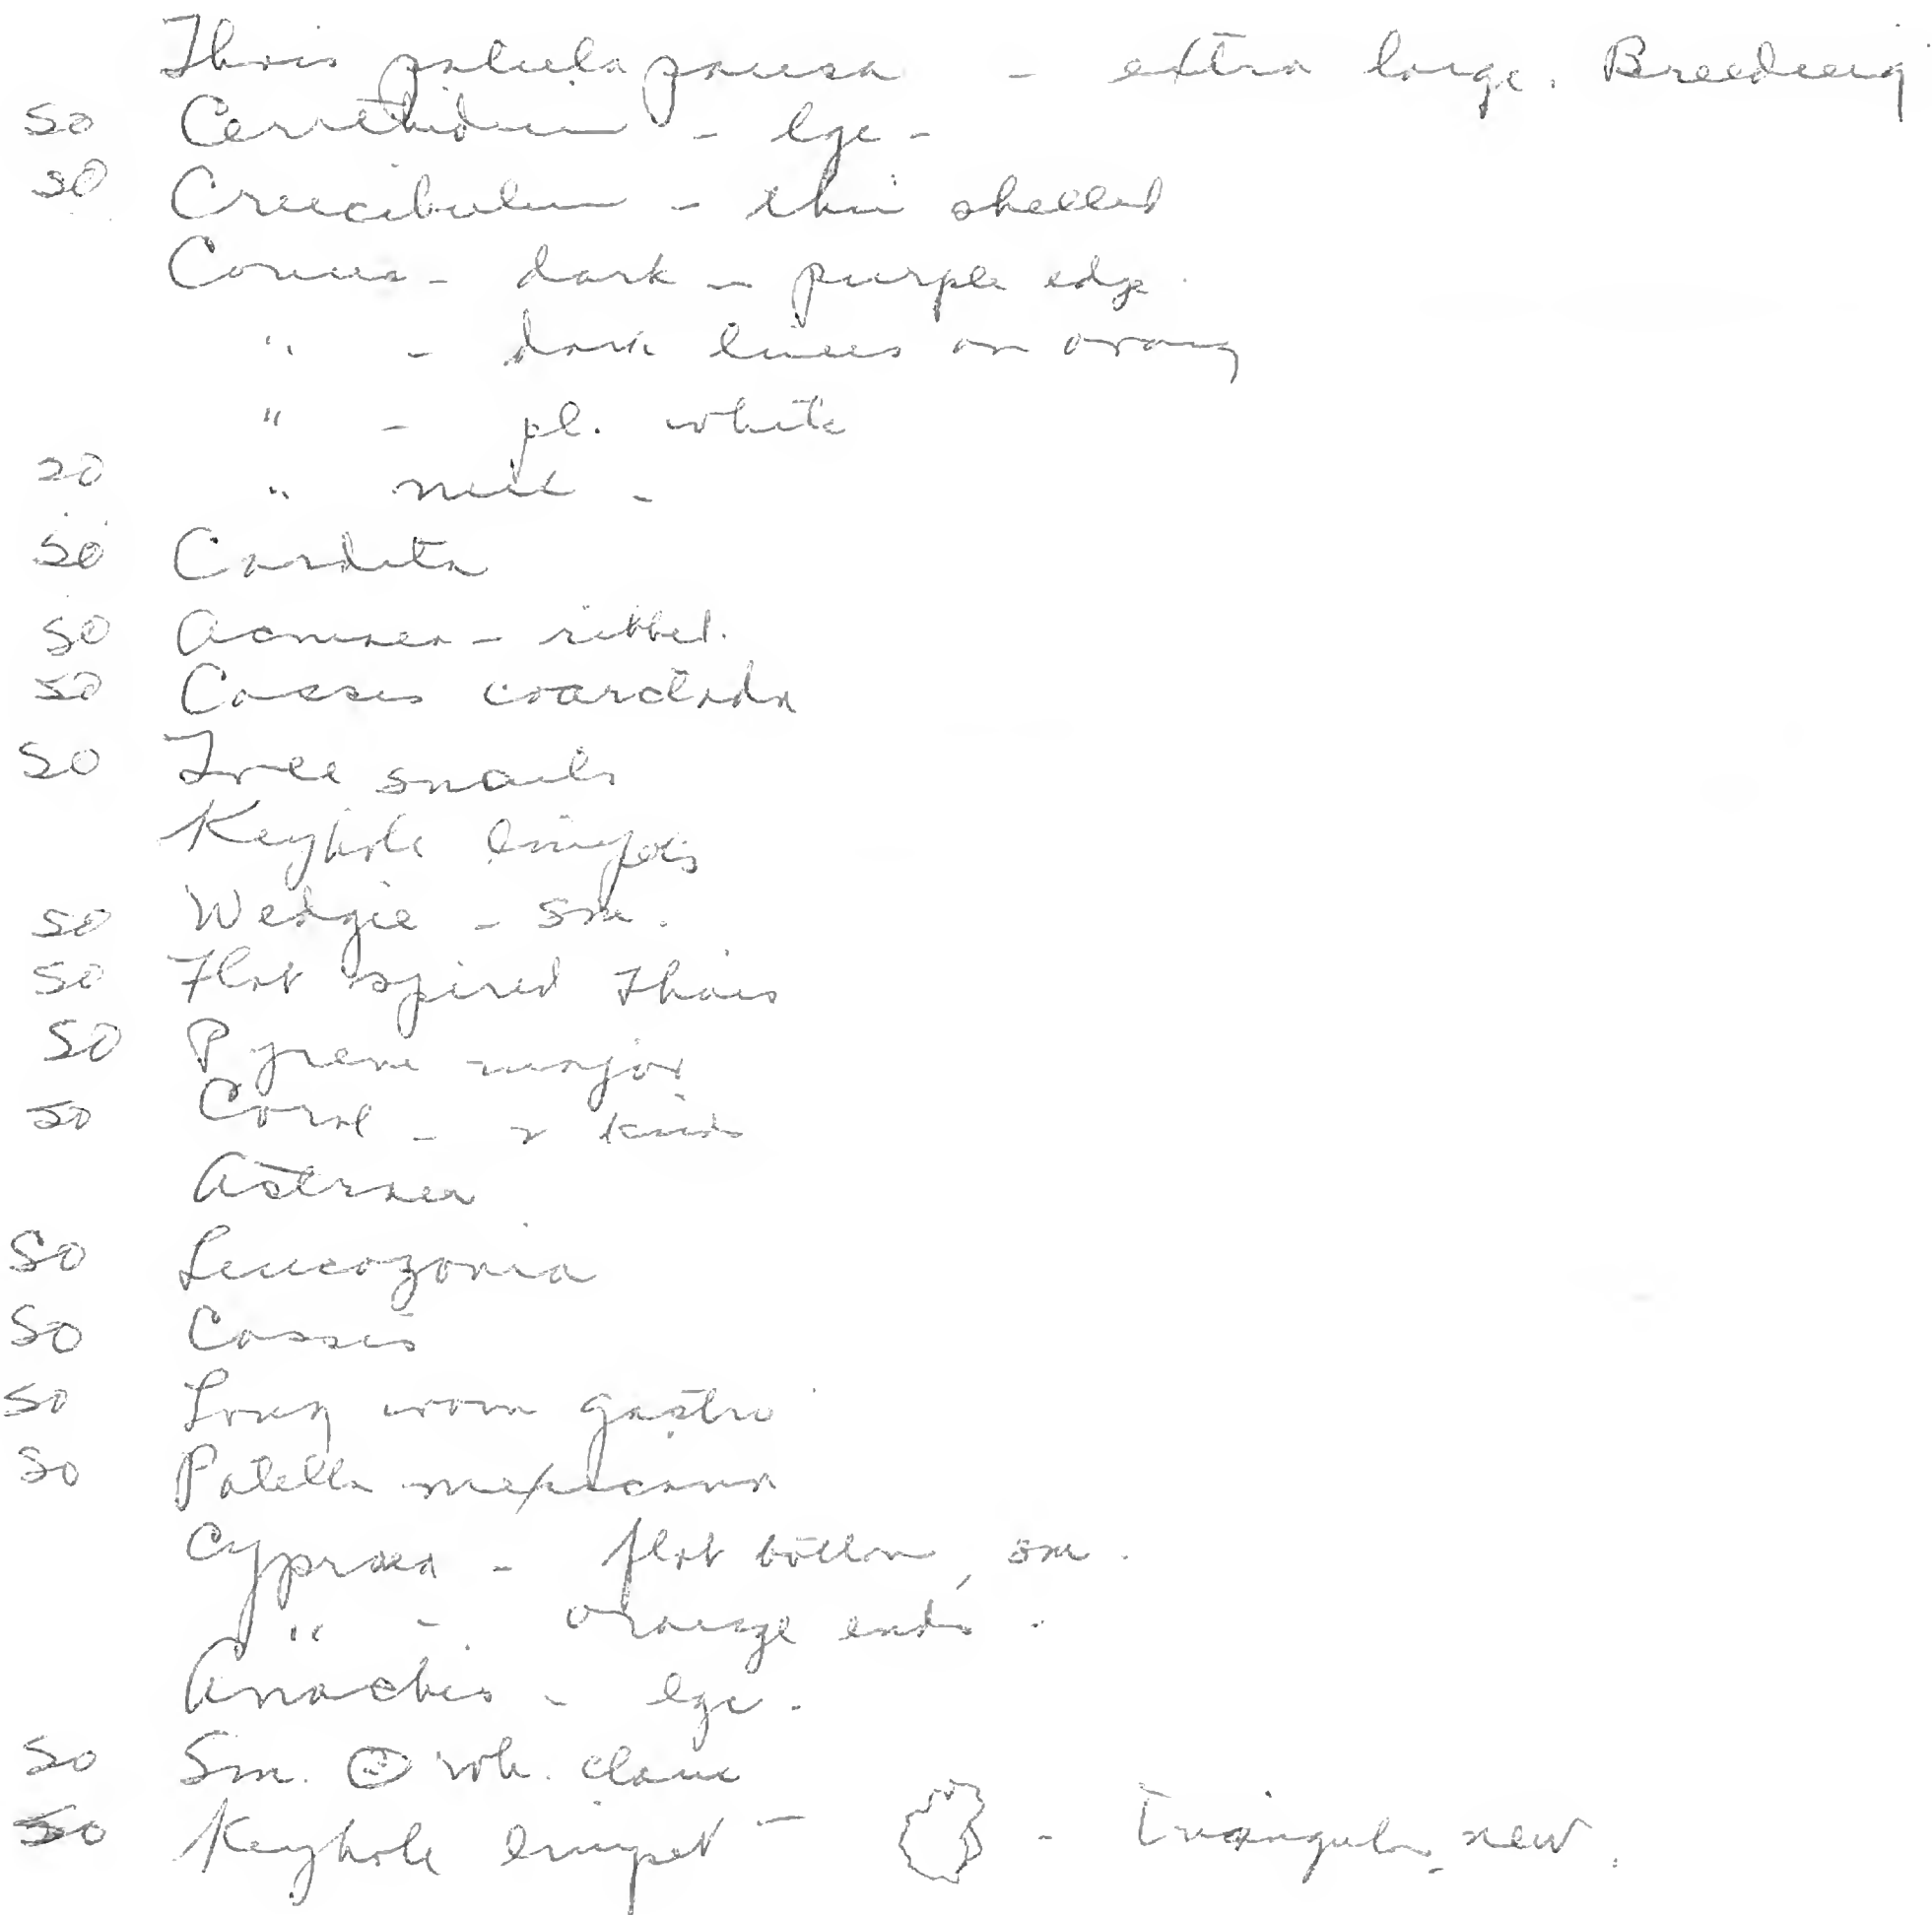 Thais patula pansa - extra large. Breeding
50 Cerrethidium - lge -
50 Crucibulum - thin shelled
Conus - dark - purple edge.
" - dark lines on orang
" - pl. white
20 " mix -
50 Cardita
50 Acmaea - ribbed.
50 Cassis coarctada
50 Tree snails
Keyhole limpets
50 Wedgie - sm.
50 Flat spired Thais
50 Pyrene major
50 Coral - 2 kinds
Astraea
50 Leucozonia
50 Cassis
50 Long worm gastro
50 Patella mexicana
Cypraea - flat bottom, sm.
" - orange ends.
Anachis - lge.
50 Sm. wh. clam
50 Keyhole limpet - - triangular, new.